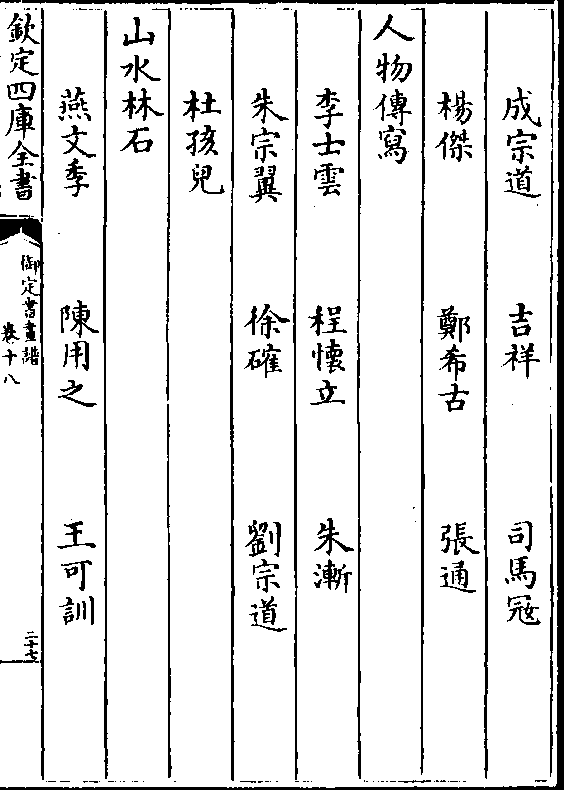 成宗道 吉祥 司馬冦
楊傑 鄭希古 張通
人物傳寫
李士雲 程懷立 朱漸
朱宗翼 徐確 劉宗道
杜孩兒
山水林石
燕文季 陳用之 王可訓
欽定四庫全書
御定書畫譜
卷十八
二十七